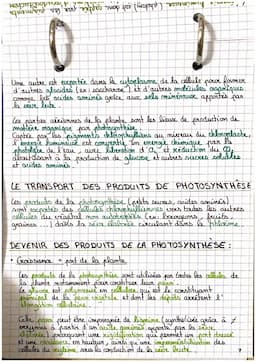 Une autre est exportée dans le cytoplasme de la cellule pour former
d'autres glucides (ex : saccharose) et d'autres molécules organiques
comme les acides aminés grâce aux sels minéraux apportés par
la sève brute.
Les parties aériennes de la plante sont les lieux de production de
matière organique par photosynthèse.
Captée par les pigments chlorophylliens au niveau du chloroplaste,
l'énergie lumineuse est convertie en énergie chimique par la
photolyse de l'eau, avec libération d'O₂ et réduction du CO₂
aboutissant à la production de glucose et autres sucres solubles
et acides aminés.
LE TRANSPORT DES PRODUITS DE PHOTOSYNTHÈSE
Les produits de la photosynthèse (petits sucres, acides aminés)
sont exportés des cellules chlorophylliennes vers toutes les autres
cellules du végétal non autotrophes (ex : bourgeons, fruits,
graines ...) dans la sève élaborée circulant dans le phloème.
DEVENIR DES PRODUITS DE LA PHOTOSYNTHÈSE :
Croissance + port de la plante
Les produits de la photosynthèse sont utilisés par toutes les cellules de
la plante notamment pour constituer leur paroi.
Le glucose est polymérisé en cellulose qui est le constituant
principal de la paroi végétale et dont les dépôts accroîtent l'
élongation cellulaire.
Cette paroi peut être imprégnée de lignine (synthétisée grâce à
enzymes à partir d'un acide aminé apporté par la sève